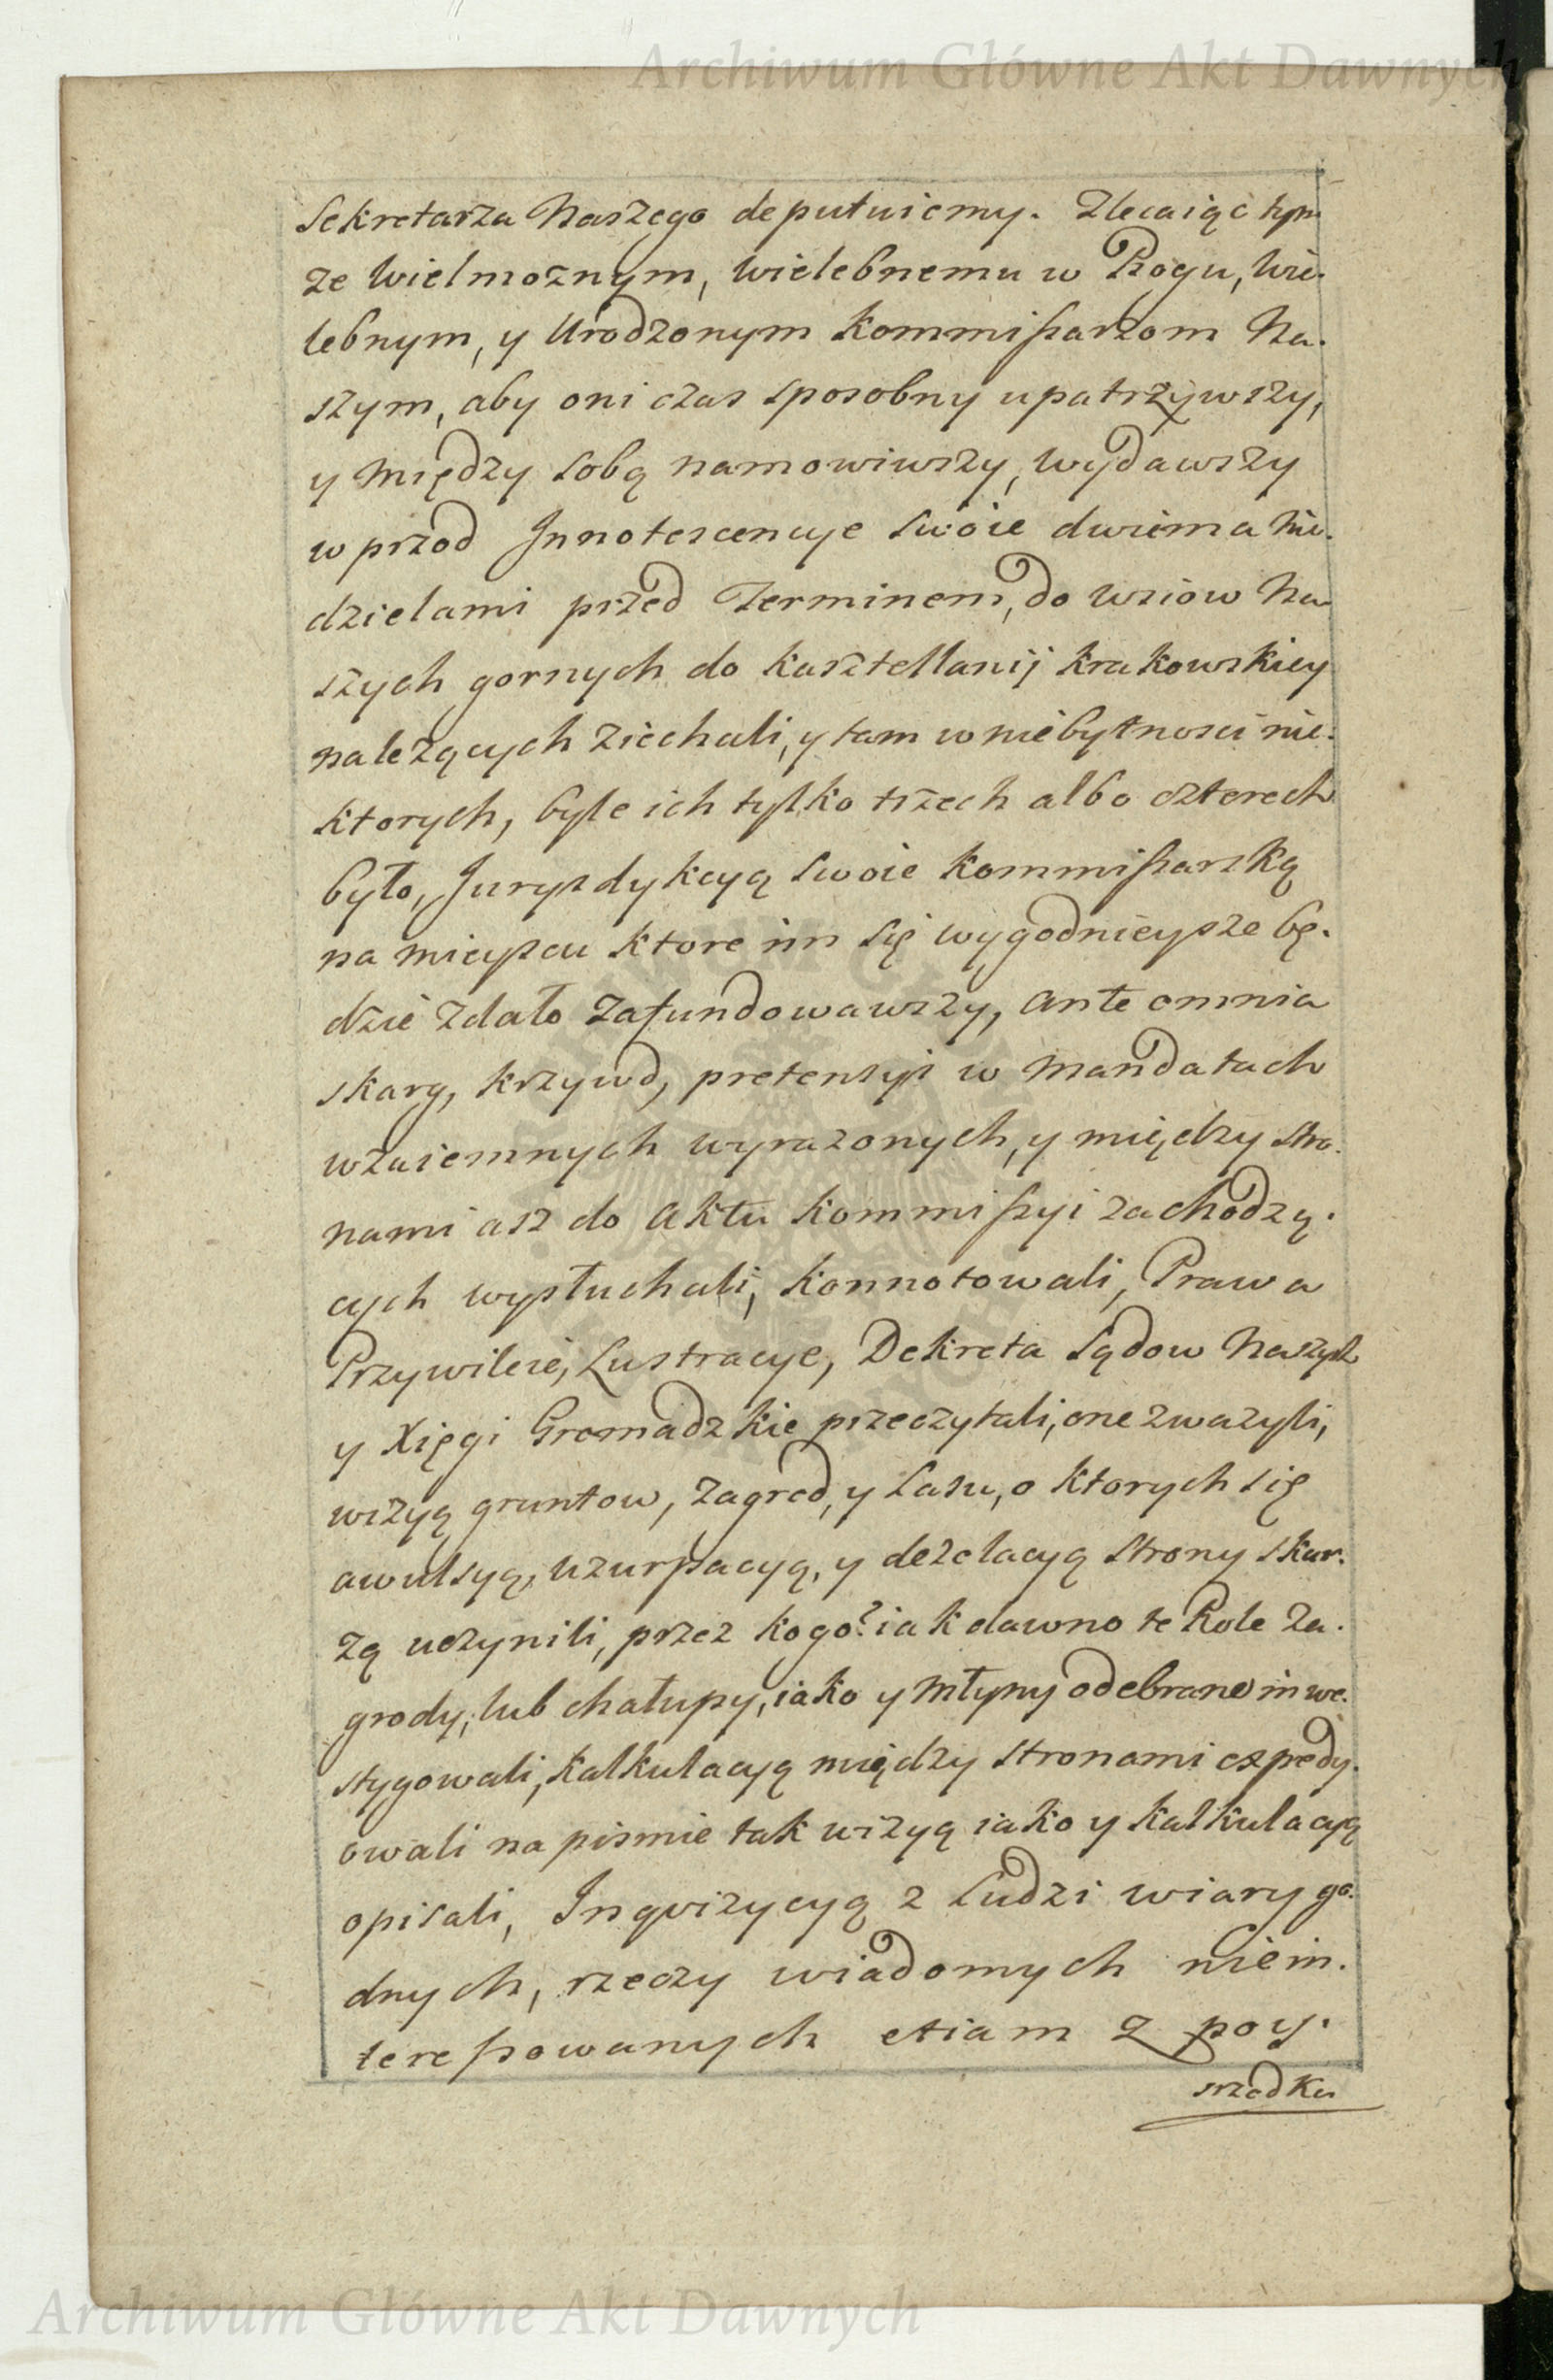 Archiwum Główne Akt Dawnych
Sekretarza Naszego deputuiemy. Zlecaiąc tym
ze Wielmoznym, Wielebnemu w Bogu, Wie-
lebnym, y Urodzonym Kommißarzom Na-
szym, aby oni czas sposobny upatrzywszy,
y między sobą namowiwszy, wydawszy
w przod Innotescencye swoie dwiema Nie-
dzielami przed Terminem, do Wsiow Na-
szych gornych do Kasztellanij Krakowskiey
nalezących ziechali, y tam w niebytnosci nie-
ktorych, byle ich tylko trzech albo czterech
było, Jurysdykcyą swoie Kommißarską
na mieyscu ktore im się wygodnieysze bę-
dzie zdało zafundowawszy, ante omnia
skarg, krzywd, pretensyi w Mandatach
wzaiemnych wyrazonych, y między stro-
nami asz do Aktu Kommißyi zachodzą-
cych wysłuchali, konnotowali, Prawa
Przywileie, Lustracye, Dekreta Sądow Naszych
y Xięgi Gromadzkie przeczytali, one zwazyli,
wizyą gruntow, Zagrod, y Lasu, o ktorych się
awulsyą, uzurpacyą, y dezelacyą strony skar-
zą uczynili, przez kogo? iak dawno te Role Za-
grody, lub chałupy, iako y Młyny odebrane inwe-
stygowali, Kalkulacyą między stronami expedy-
owali na pismie tak wizyą iako y kalkulacyą
opisali, Inqvizycyą z Ludzi wiary go-
dnych, rzeczy wiadomych niein-
tereßowanych etiam z pos-
srzodka
Archiwum Główne Akt Dawnych